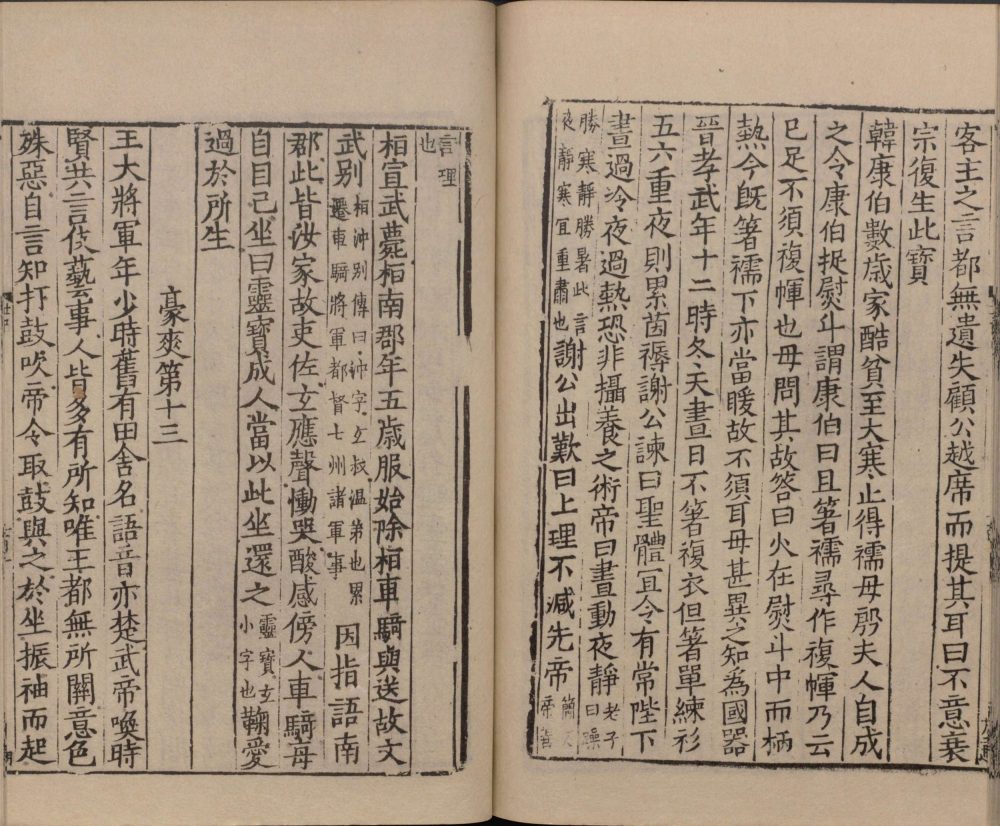 客主之言都無遺失顧公越席而提其耳曰不意衰
宗復生此寶
韓康伯數歲家酷貧至大寒止得襦母殷夫人自成
之令康伯捉熨斗謂康伯曰且箸襦尋作複㡓乃云
已足不須複㡓也母問其故答曰火在熨斗中而柄
熱今旣箸襦下亦當暖故不須耳母甚異之知為國器
晉孝武年十二時冬天晝日不箸複衣但箸單練衫
五六重夜則累茵褥謝公諫曰聖體宜令有常陛下
晝過冷夜過熱恐非攝養之術帝曰晝動夜靜老子曰躁
勝寒靜勝暑此言
夜靜寒宜重肅也謝公出歎曰上理不減先帝簡文帝善
言理也
桓宣武薨桓南郡年五歲服始除桓車騎與送故文
武别桓沖别傳曰沖字玄叔溫弟也累
遷車騎將軍都督七州諸軍事因指語南
郡此皆汝家故吏佐玄應聲慟哭酸感傍人車騎每
自目己坐曰靈寶成人當以此坐還之靈寶玄小字也鞠愛
過於所生
豪爽第十三
王大將軍年少時舊有田舍名語音亦楚武帝喚時
賢共言伎藝事人皆多有所知唯王都無所關意色
殊惡自言知打鼓吹帝令取鼓與之於坐振袖而起